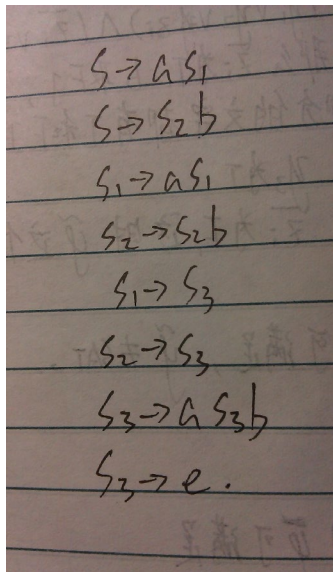 S→aS₁
S→S₂b
S₁→aS₁
S₂→S₂b
S₁→S₃
S₂→S₃
S₃→aS₃b
S₃→e.